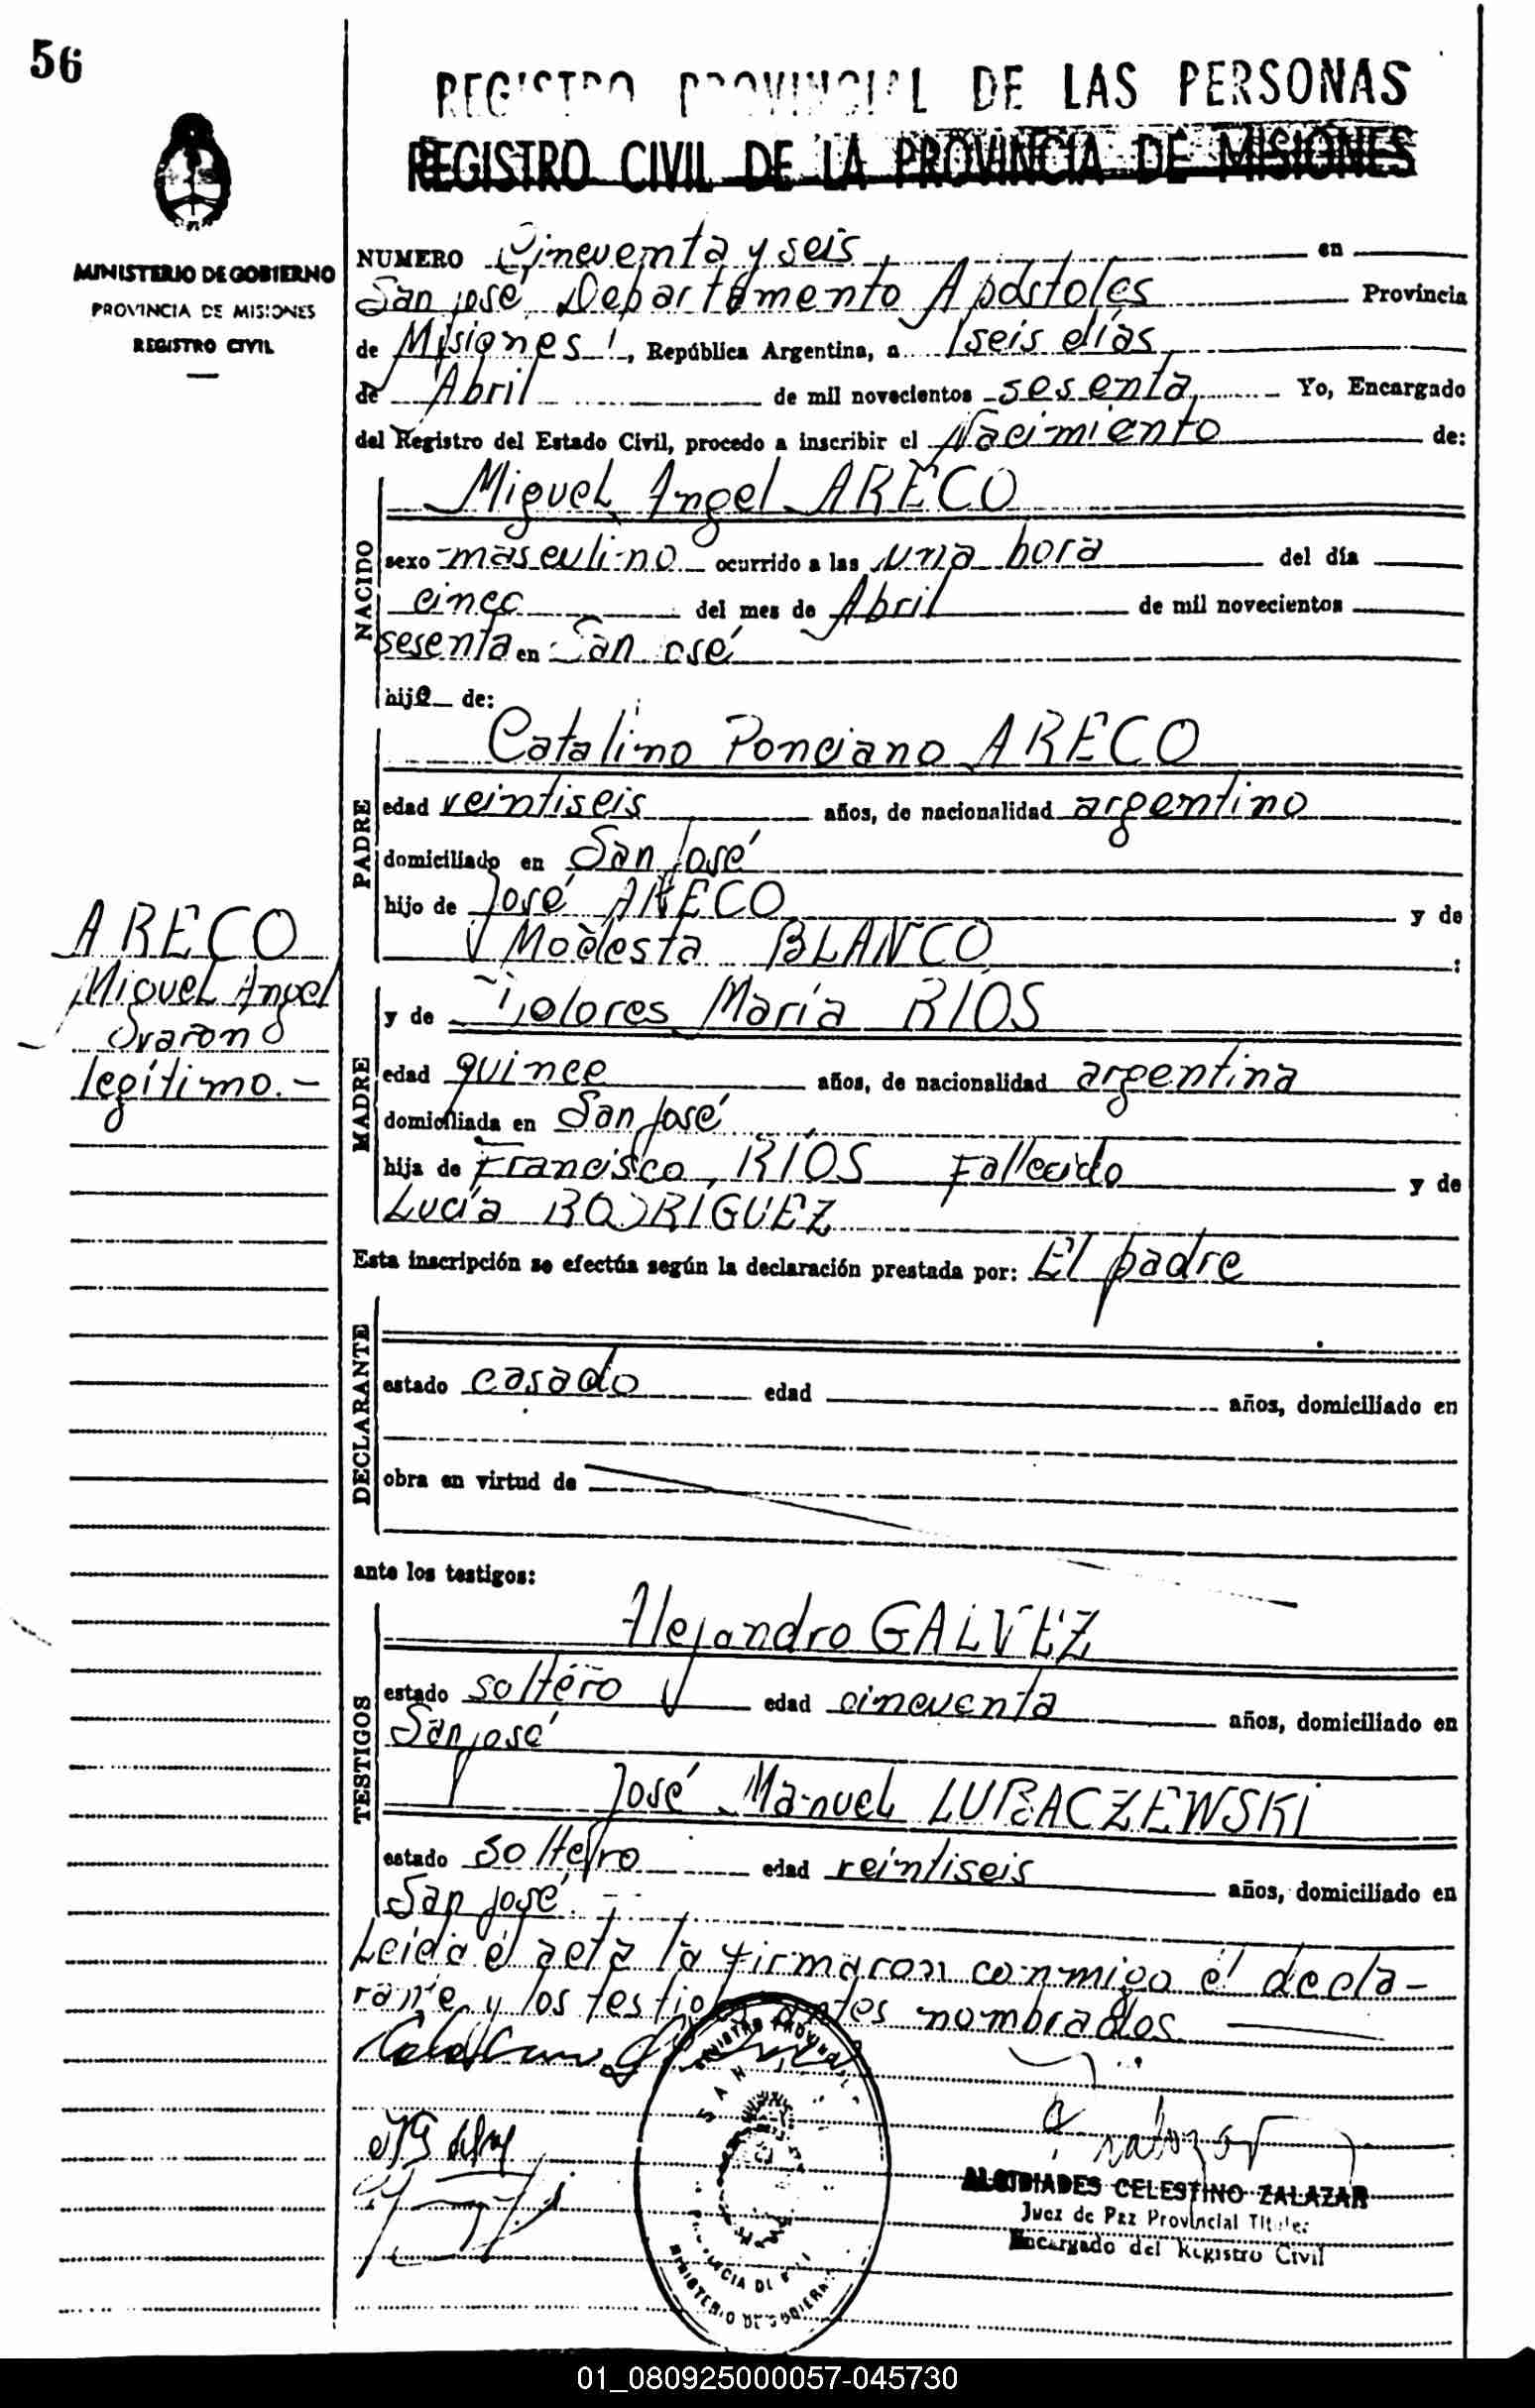 56
REGISTRO PROVINCIAL DE LAS PERSONAS
REGISTRO CIVIL DE LA PROVINCIA DE MISIONES
MINISTERIO DE GOBIERNO
PROVINCIA DE MISIONES
REGISTRO CIVIL
NUMERO Cincuenta y seis en
San José, Departamento Apóstoles Provincia
de Misiones, República Argentina, a seis días
de Abril de mil novecientos sesenta, Yo, Encargado
del Registro del Estado Civil, procedo a inscribir el Nacimiento de:
NACIDO
Miguel Angel ARECO
sexo masculino ocurrido a las una hora del día
cinco del mes de Abril de mil novecientos
sesenta en San José
hijo de:
PADRE
Catalino Ponciano ARECO
edad veintiseis años, de nacionalidad argentino
domiciliado en San José
hijo de José ARECO y de
Modesta BLANCO
ARECO
Miguel Angel
varón
legítimo.-
MADRE
y de Dolores María RÍOS
edad quince años, de nacionalidad argentina
domiciliada en San José
hija de Francisco RÍOS Fallecido y de
Lucía RODRIGUEZ
Esta inscripción se efectúa según la declaración prestada por: El padre
DECLARANTE
estado casado edad años, domiciliado en
obra en virtud de
ante los testigos:
TESTIGOS
Alejandro GALVEZ
estado soltero edad cincuenta años, domiciliado en
San José
José Manuel LUBACZEWSKI
estado soltero edad veintiseis años, domiciliado en
San José.
Leída el acta la firmaron conmigo el decla-
rante y los testigos antes nombrados
REGISTRO PROVINCIAL
SAN
PROVINCIA DE
MINISTERIO DE GOBIERNO
ALCIBIADES CELESTINO ZALAZAR
Juez de Paz Provincial Titular
Encargado del Registro Civil
01_080925000057-045730